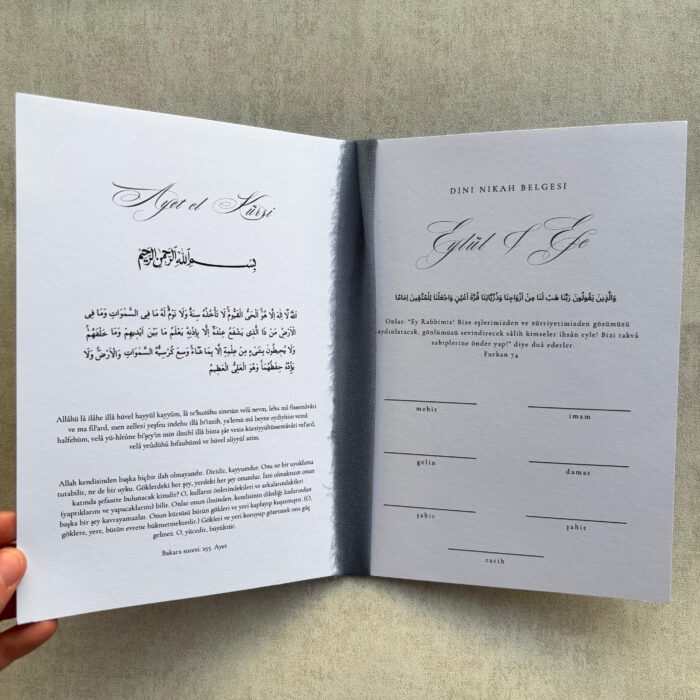 Ayet el Kürsi
بِسْمِ اللّٰهِ الرَّحْمٰنِ الرَّحِيمِ
اَللّٰهُ لَا اِلٰهَ اِلَّا هُوَ اَلْحَىُّ الْقَيُّومُ لَا تَأْخُذُهُ سِنَةٌ وَلَا نَوْمٌ لَهُ مَا فِى السَّمٰوَاتِ وَمَا فِى
الْاَرْضِ مَنْ ذَا الَّذِى يَشْفَعُ عِنْدَهُ اِلَّا بِاِذْنِهِ يَعْلَمُ مَا بَيْنَ اَيْدِيهِمْ وَمَا خَلْفَهُمْ
وَلَا يُحِيطُونَ بِشَىْءٍ مِنْ عِلْمِهِ اِلَّا بِمَا شَاءَ وَسِعَ كُرْسِيُّهُ السَّمٰوَاتِ وَالْاَرْضَ وَلَا
يَؤُدُهُ حِفْظُهُمَا وَهُوَ الْعَلِىُّ الْعَظِيمُ
Allâhü lâ ilâhe illâ hüvel hayyül kayyûm, lâ te'huzühu sinetün velâ nevm, lehu mâ fissemâvâti
ve ma fil'ard, men zellezi yeşfeu indehu illâ bi'iznih, ya'lemü mâ beyne eydiyhim vemâ
halfehüm, velâ yü-hîtûne bi'şey'in min ilmihî illâ bima şâe vesia kürsiyyühüssemâvâti vel'ard,
velâ yeûdühû hıfzuhümâ ve hüvel aliyyül azim.
Allah kendisinden başka hiçbir ilah olmayandır. Diridir, kayyumdur. Onu ne bir uyuklama
tutabilir, ne de bir uyku. Göklerdeki her şey, yerdeki her şey onundur. İzni olmaksızın onun
katında şefaatte bulunacak kimdir? O, kulların önlerindekileri ve arkalarındakileri
(yaptıklarını ve yapacaklarını) bilir. Onlar onun ilminden, kendisinin dilediği kadarından
başka bir şey kavrayamazlar. Onun kürsüsü bütün gökleri ve yeri kaplayıp kuşatmıştır. (O,
göklere, yere, bütün evrene hükmetmektedir.) Gökleri ve yeri koruyup gözetmek ona güç
gelmez. O, yücedir, büyüktür.
Bakara suresi: 255. Ayet
DINI NIKAH BELGESI
Eylül & Efe
وَالَّذِينَ يَقُولُونَ رَبَّنَا هَبْ لَنَا مِنْ اَزْوَاجِنَا وَذُرِّيَّاتِنَا قُرَّةَ اَعْيُنٍ وَاجْعَلْنَا لِلْمُتَّقِينَ اِمَامًا
Onlar: "Ey Rabbimiz! Bize eşlerimizden ve zürriyetimizden gözümüzü
aydınlatacak, gönlümüzü sevindirecek sâlih kimseler ihsân eyle! Bizi takvâ
sahiplerine önder yap!" diye duâ ederler.
Furkan 74
mehir
imam
gelin
damat
şahit
şahit
tarih